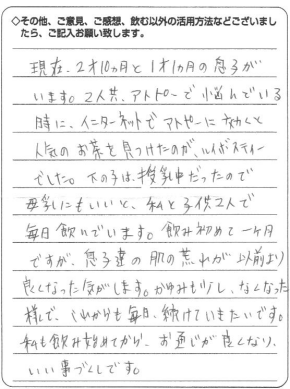 ◇その他、ご意見、ご感想、飲む以外の活用方法などございまし
たら、ご記入お願い致します。
現在、2才10ヵ月と1才1ヵ月の息子が
います。2人共、アトピーで悩んでいる
時に、インターネットでアトピーに効くと
人気のお茶を見つけたのが、ルイボスティー
でした。下の子は、授乳中だったので
母乳にもいいと、私と子供2人で
毎日飲んでいます。飲み初めて一ヶ月
ですが、息子達の肌の荒れが以前より
良くなった気がします。かゆみも少し、なくなった
様で、これからも毎日、続けていきたいです。
私も飲み始めてから、お通じが良くなり、
いい事づくしです。